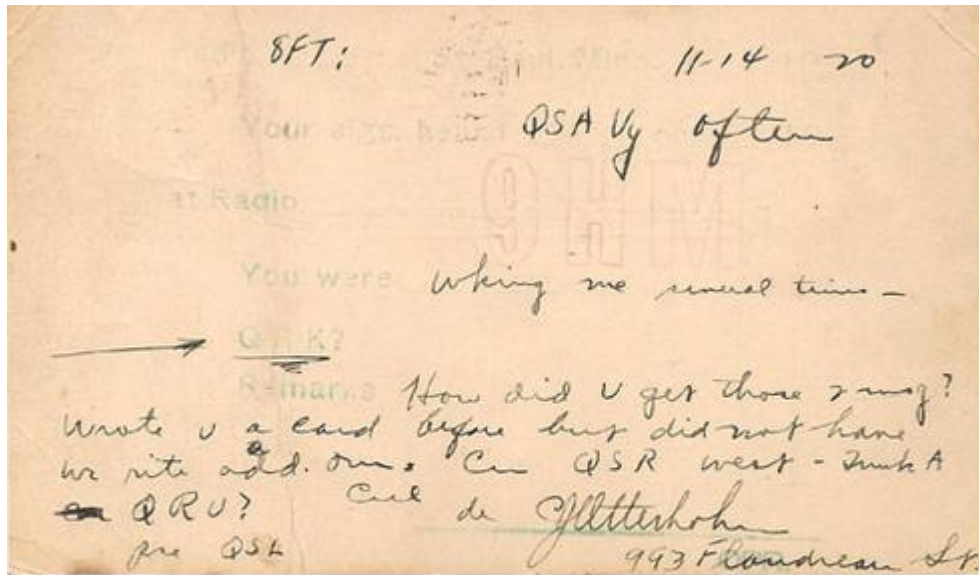 8FT: 11-14 20
Radio St. Paul, Minn.
QSA Vy often
Your sigs. heard
9HM
at Radio
You were wking me several times -
QRK?
Remarks How did U get those 2 msg?
Wrote U a card before but did not have
ur rite add. om. Cn QSR west - Trunk A
QRU? Cul de
pse QSL 993 Flandreau St.